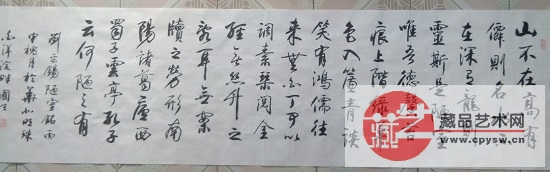 山不在高有
僊則名水不
在深有龍則
靈斯是陋室
唯吾德馨苔
痕上階綠草
色入簾青談
笑有鴻儒往
来無白丁可以
調素琴閱金
經無絲竹之
亂耳無案
牘之勞形南
陽諸葛廬西
蜀子雲亭孔子
云何陋之有
劉禹錫陋室銘丙
申桃月於
明珠
洋淀畔國生
藏品艺术网
www.cpysw.cn
藏品艺术网
www.cpysw.cn